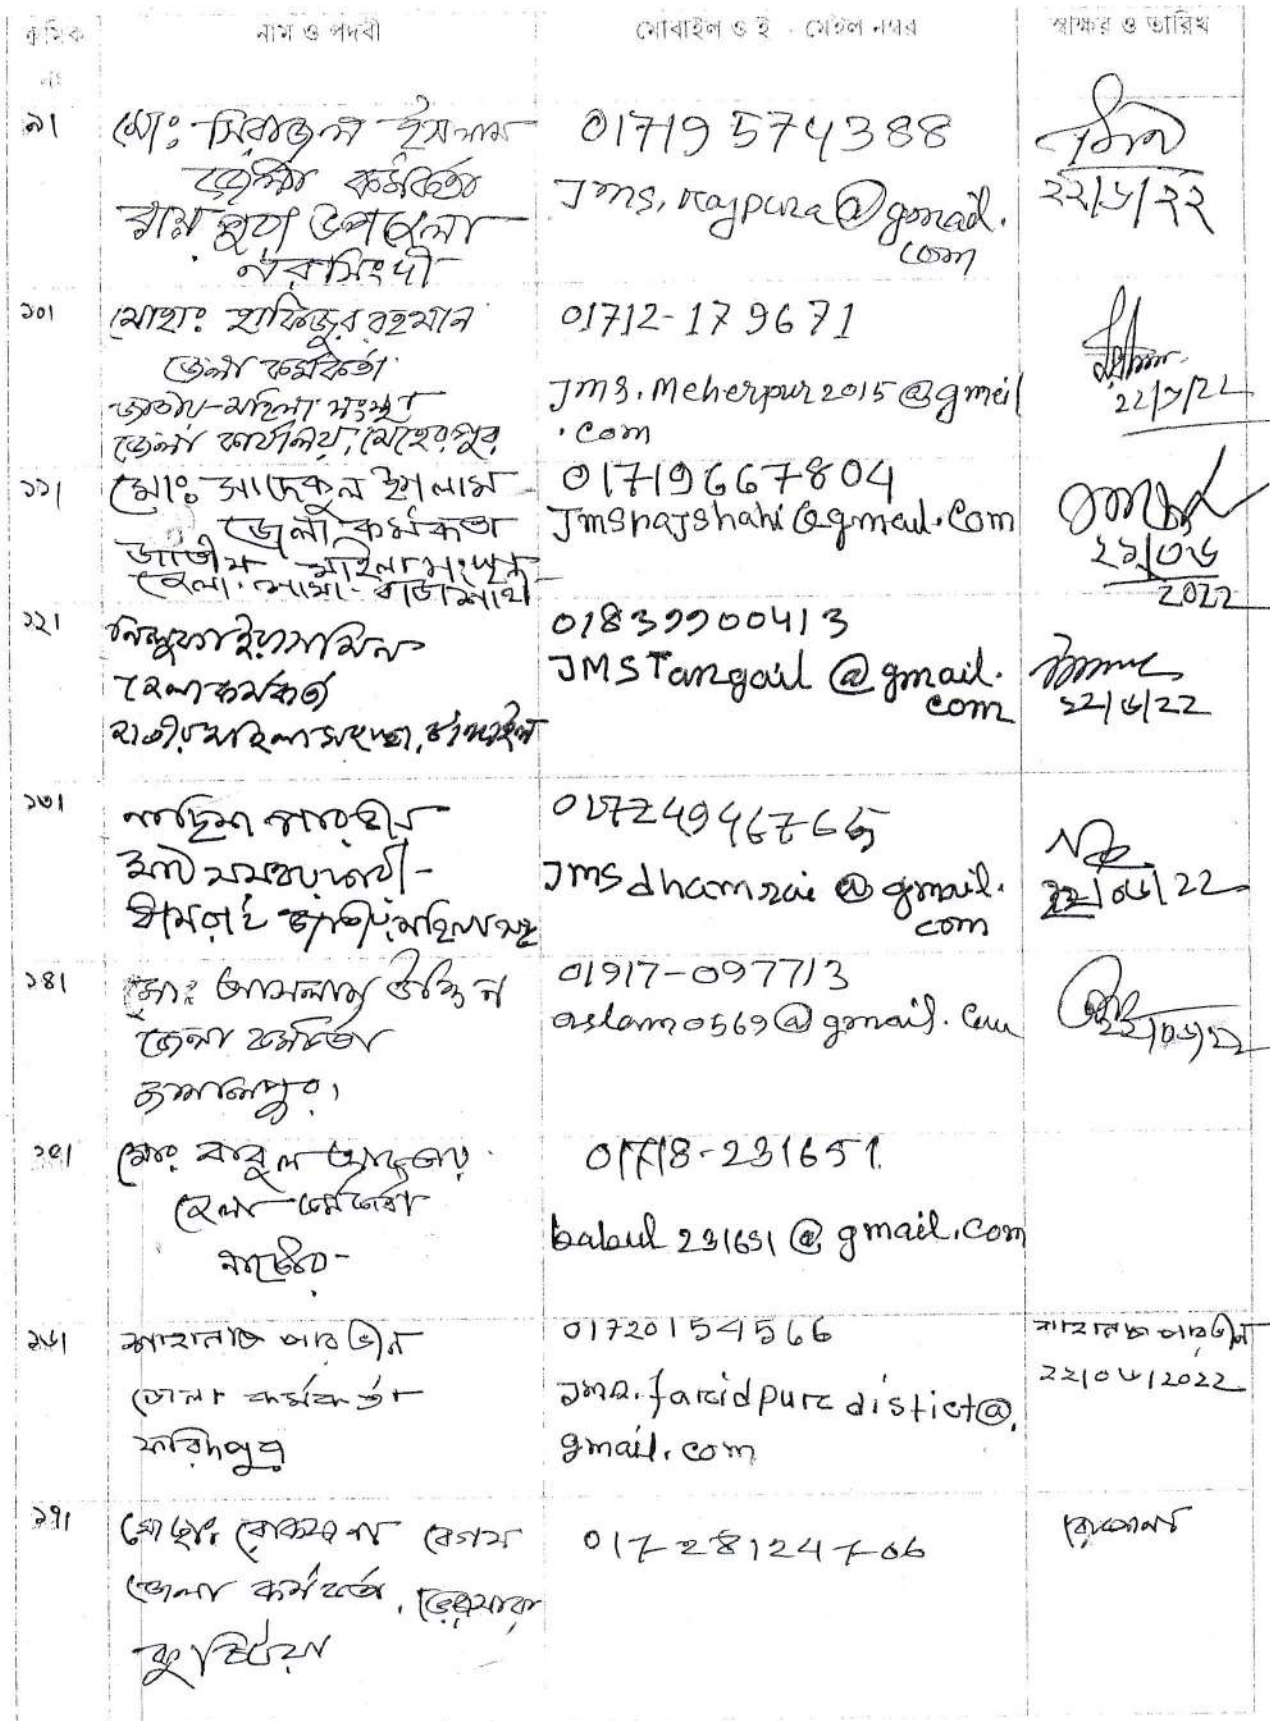 ক্রমিক নং
নাম ও পদবী
মোবাইল ও ই - মেইল নম্বর
স্বাক্ষর ও তারিখ
৯।
মোঃ সিরাজুল ইসলাম
কর্মকর্তা
রায়পুরা উপজেলা
নরসিংদী
01719574388
Jms.raypura@gmail.
com
২২/৬/২২
১০।
মোহাঃ হাফিজুর রহমান
জেলা কর্মকর্তা
জাতীয় মহিলা সংস্থা
জেলা কার্যালয়, মেহেরপুর
01712-179671
Jms.Meherpur2015@gmail
.com
22/৬/22
১১।
মোঃ সাদেকুল ইসলাম
জেলা কর্মকর্তা
জাতীয় মহিলা সংস্থা
জেলা শাখা- রাজশাহী
01719667804
Jmsrajshahi@gmail.com
২২/০৬
2022
১২।
নিলুফা ইয়াসমিন
জেলা কর্মকর্তা
জাতীয় মহিলা সংস্থা, টাঙ্গাইল
01839900413
JMSTangail@gmail.
com
২২/৬/22
১৩।
ধামরাই জাতীয় মহিলা সংস্থা
Jmsdhamrai@gmail.
com
২২/০৬/22
১৪।
মোঃ আসলাম উদ্দিন
জেলা কর্মকর্তা
জামালপুর।
01917-097713
aslam0569@gmail.com
২২/০৬/২২
১৫।
মোঃ বাবুল আক্তার
জেলা কর্মকর্তা
নাটোর-
01718-231651
babul231651@gmail.com
১৬।
শাহানাজ পারভীন
জেলা কর্মকর্তা
ফরিদপুর
01720154566
Jms.faridpur distict@
gmail.com
শাহানাজ পারভীন
২২/০৬/2022
১৭।
মোছাঃ রোকসানা বেগম
জেলা কর্মকর্তা, ভেড়ামারা
কুষ্টিয়া
01728124706
রোকসানা